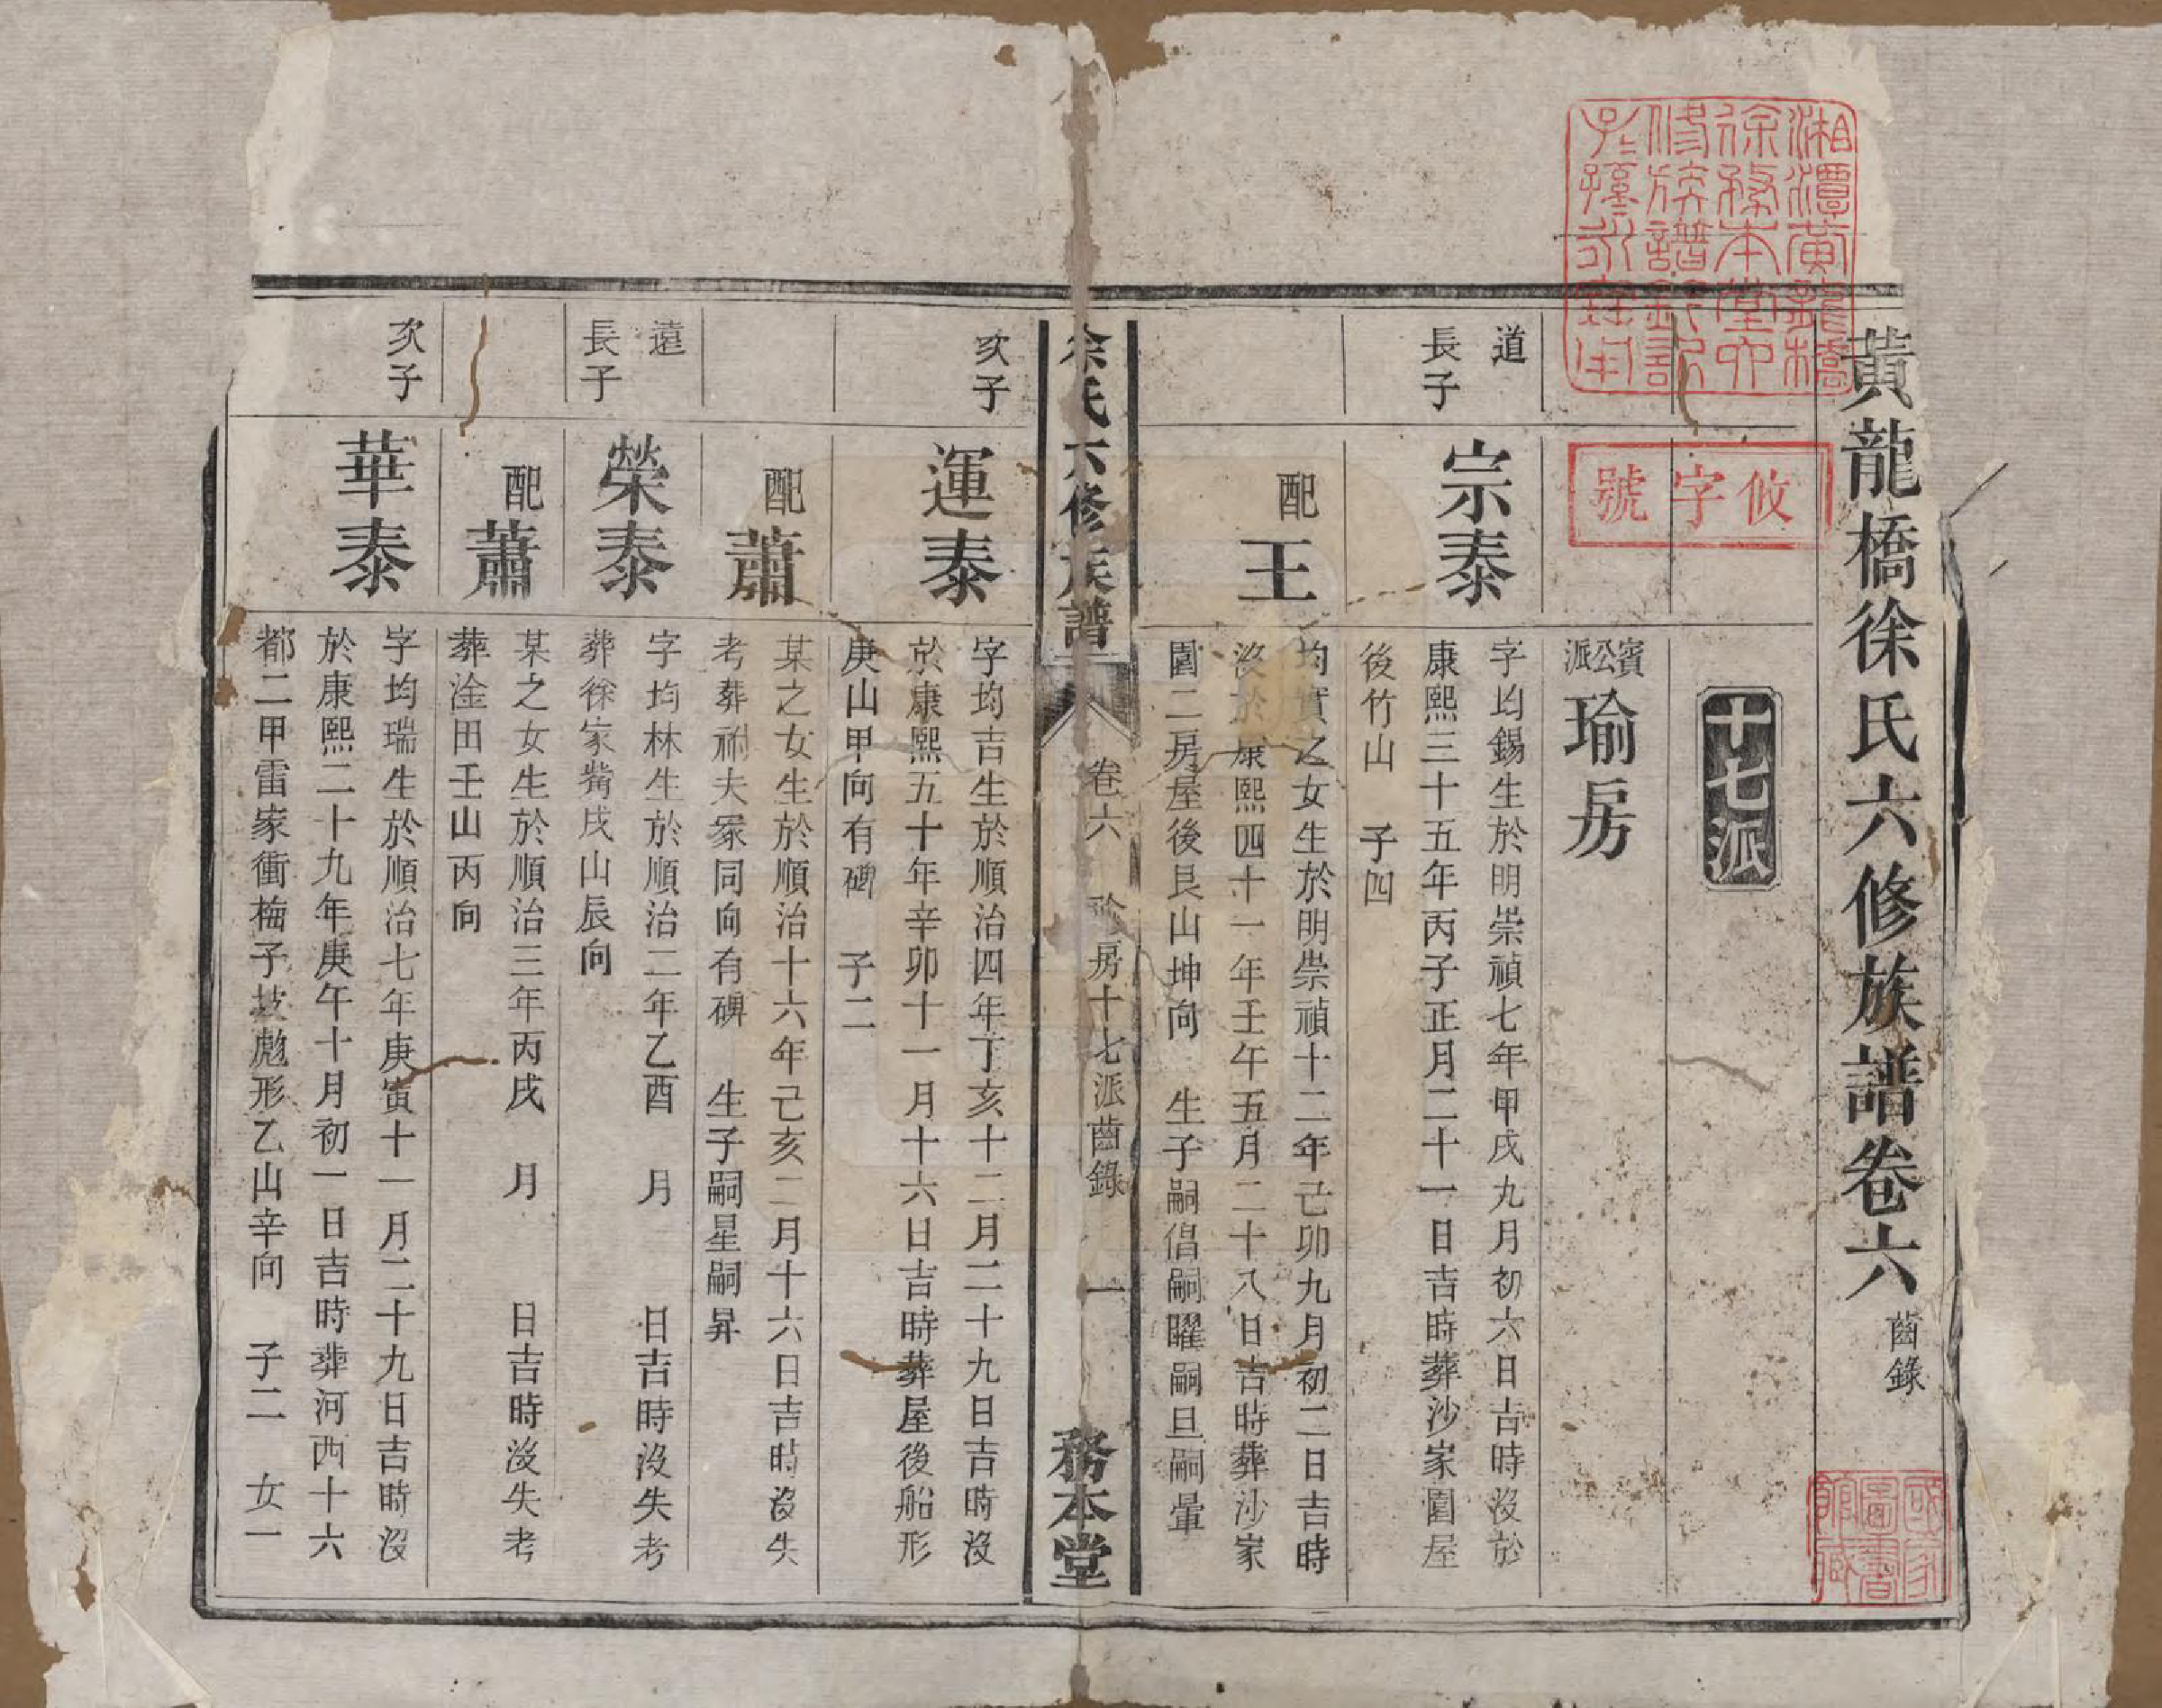 黃龍橋徐氏六修族譜卷六 齒錄
湘潭黃龍橋
徐務本堂六
修族譜鈐記
子孫永寶用
攸字號
國家
圖書
館藏
十七派
賓公派 瑜房
道
長子
宗泰
字均錫生於明崇禎七年甲戌九月初六日吉時沒於
康熙三十五年丙子正月二十一日吉時葬沙家園屋
後竹山 子四
配王
均實之女生於明崇禎十二年己卯九月初二日吉時
沒於康熙四十一年壬午五月二十八日吉時葬沙家
園二房屋後艮山坤向 生子嗣倡嗣曜嗣旦嗣暈
徐氏六修族譜 卷六 房十七派齒錄 一 務本堂
次子
運泰
字均吉生於順治四年丁亥十二月二十九日吉時沒
於康熙五十年辛卯十一月十六日吉時葬屋後船形
庚山甲向有碑 子二
配蕭
某之女生於順治十六年己亥二月十六日吉時沒失
考葬祔夫冢同向有碑 生子嗣星嗣昇
遠
長子
榮泰
字均林生於順治二年乙酉 月 日吉時沒失考
葬徐家嘴戌山辰向
配蕭
某之女生於順治三年丙戌 月 日吉時沒失考
葬淦田壬山丙向
次子
華泰
字均瑞生於順治七年庚寅十一月二十九日吉時沒
於康熙二十九年庚午十月初一日吉時葬河西十六
都二甲雷家衝梅子坡彪形乙山辛向 子二 女一